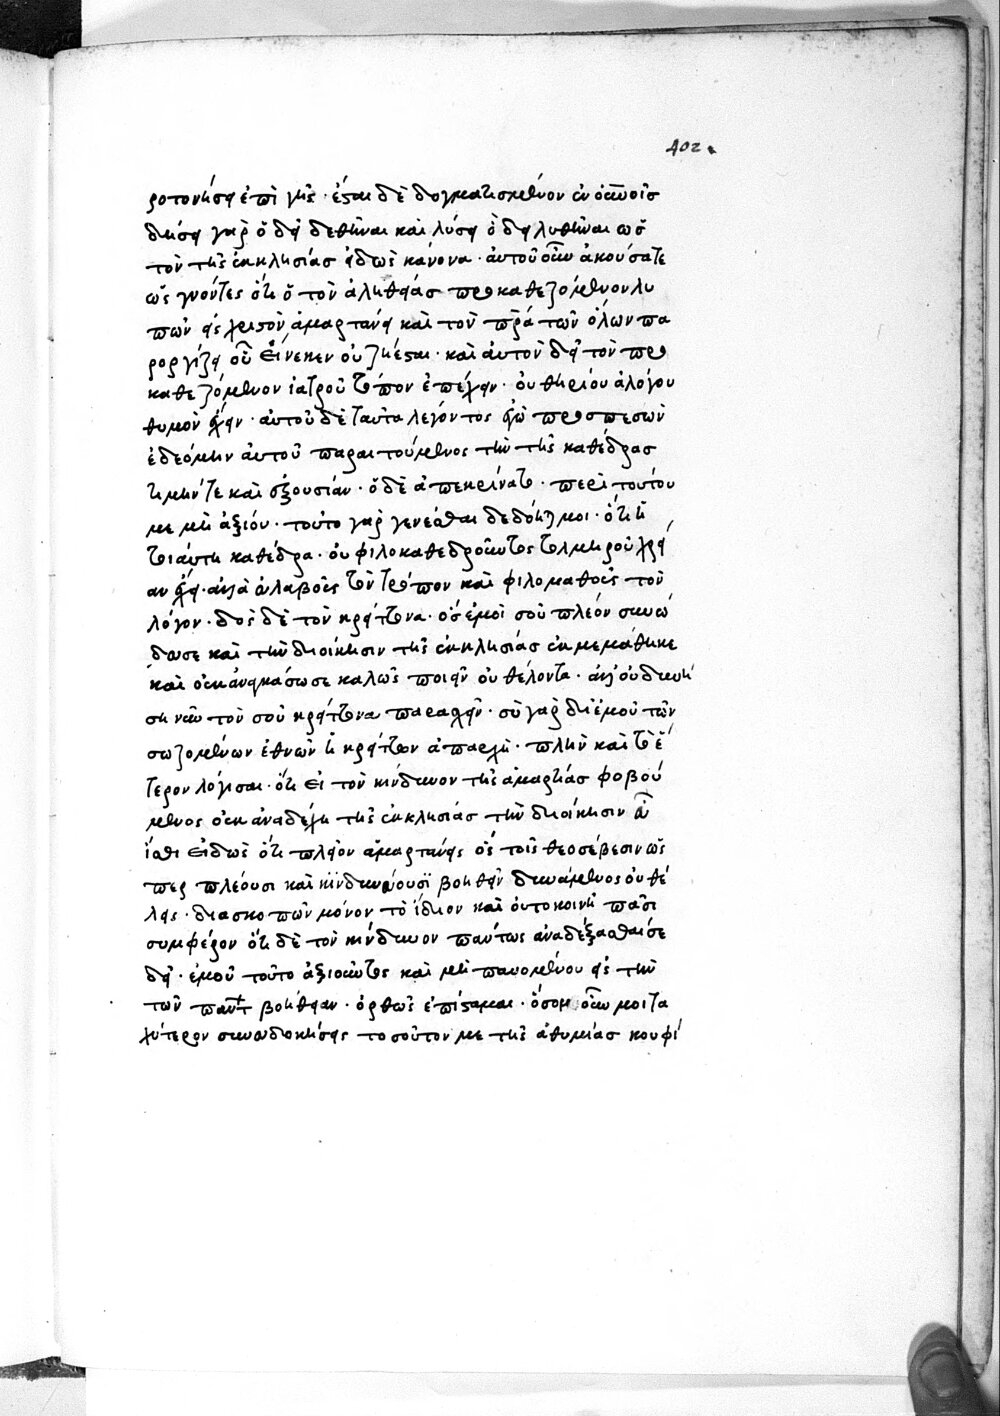 402
ροτονήσῃ ἐπὶ γῆς · ἔσται δὲ δογματισμένον ἐν οὐνοῖς
δήσει γὰρ ὃ δεῖ δεθῆναι καὶ λύσει ὃ δεῖ λυθῆναι ὡς
τὸν τῆς ἐκκλησίας εἰδὼς κανόνα · αὐτοῦ οὖν ἀκούσατε
ὡς γνόντες ὅτι ὁ τὸν ἀληθείας προκαθεζόμενον λυ
πῶν εἰς χριστὸν ἁμαρτάνει καὶ τὸν πρα τῶν ὅλων πα
ροργίζει οὗ εἵνεκεν οὐ ζήσεται · καὶ αὐτὸν δεῖ τὸν προ
καθεζόμενον ἰατροῦ τόπον ἐπέχειν · οὐ θηρίου ἀλόγου
θυμὸν ἔχειν · αὐτοῦ δὲ ταῦτα λέγοντος ἐγὼ προσπεσὼν
ἐδεόμην αὐτοῦ παραιτούμενος τὴν τῆς καθέδρας
τιμήν τε καὶ ἐξουσίαν · ὁ δὲ ἀπεκρίνατο · περὶ τούτου
με μὴ ἀξίου · τοῦτο γὰρ γενέσθαι δέδοκταί μοι · ὅτι ἡ
τοιαύτη καθέδρα · οὐ φιλοκαθεδροῦντος τολμηροῦ χρεί
αν ἔχει · ἀλλὰ εὐλαβοῦς τὸν τρόπον καὶ φιλομαθοῦς τὸν
λόγον · δὸς δὲ τὸν κρείττονα · ὃς ἐμοὶ σοῦ πλέον συνώ
δευσε καὶ τὴν διοίκησιν τῆς ἐκκλησίας ἐκμεμάθηκε
καὶ οὐκ ἀναγκάσω σε καλῶς ποιεῖν οὐ θέλοντα · ἀλλ' οὐ δυνή
σῃ νῦν τὸν σοῦ κρείττονα παρασχεῖν · σὺ γὰρ δι' ἐμοῦ τῶν
σωζομένων ἐθνῶν ἡ κρείττων ἀπαρχή · πλὴν καὶ τὸ ἕ
τερον λόγισαι · ὅτι εἰ τὸν κίνδυνον τῆς ἁμαρτίας φοβού
μενος οὐκ ἀναδέχῃ τῆς ἐκκλησίας τὴν διοίκησιν εὖ
ἴσθι εἰδὼς ὅτι πλεῖον ἁμαρτάνεις ὃς τοῖς θεοσέβεσιν ὥσ
περ πλέουσι καὶ κινδυνεύουσι βοηθεῖν δυνάμενος οὐ θέ
λεις · διασκοπῶν μόνον τὸ ἴδιον καὶ οὐ τὸ κοινῇ πᾶσι
συμφέρον ὅτι δὲ τὸν κίνδυνον πάντως ἀναδέξασθαί σε
δεῖ · ἐμοῦ τοῦτο ἀξιοῦντος καὶ μὴ παυομένου εἰς τὴν
τῶν παντ βοήθειαν · ὀρθῶς ἐπίσταμαι · ὅσον οὖν μοι τα
χύτερον συνευδοκήσεις τοσοῦτόν με τῆς ἀθυμίας κουφί